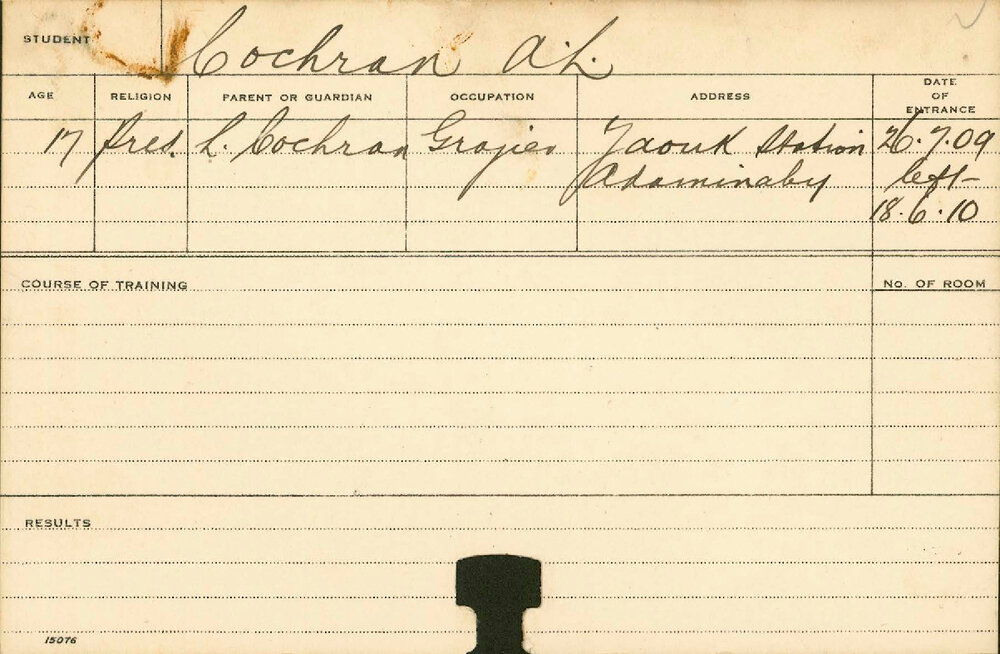 STUDENT Cochran A.L.
AGE RELIGION PARENT OR GUARDIAN OCCUPATION ADDRESS DATE OF ENTRANCE
17 Pres. L. Cochran Grazier Yaouk Station 26.7.09
Adaminaby left-
18.6.10
COURSE OF TRAINING No. OF ROOM
RESULTS
15076